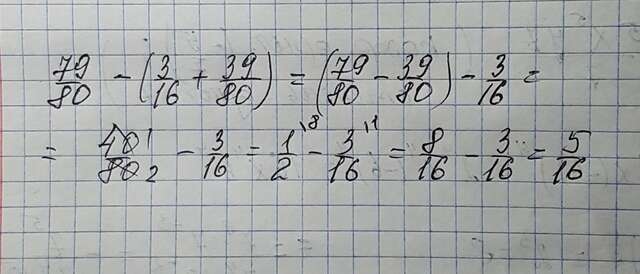 79/80 - (3/16 + 39/80) = (79/80 - 39/80) - 3/16 =
= 40¹/80₂ - 3/16 = 1/2 \8 - 3/16 \1 = 8/16 - 3/16 = 5/16